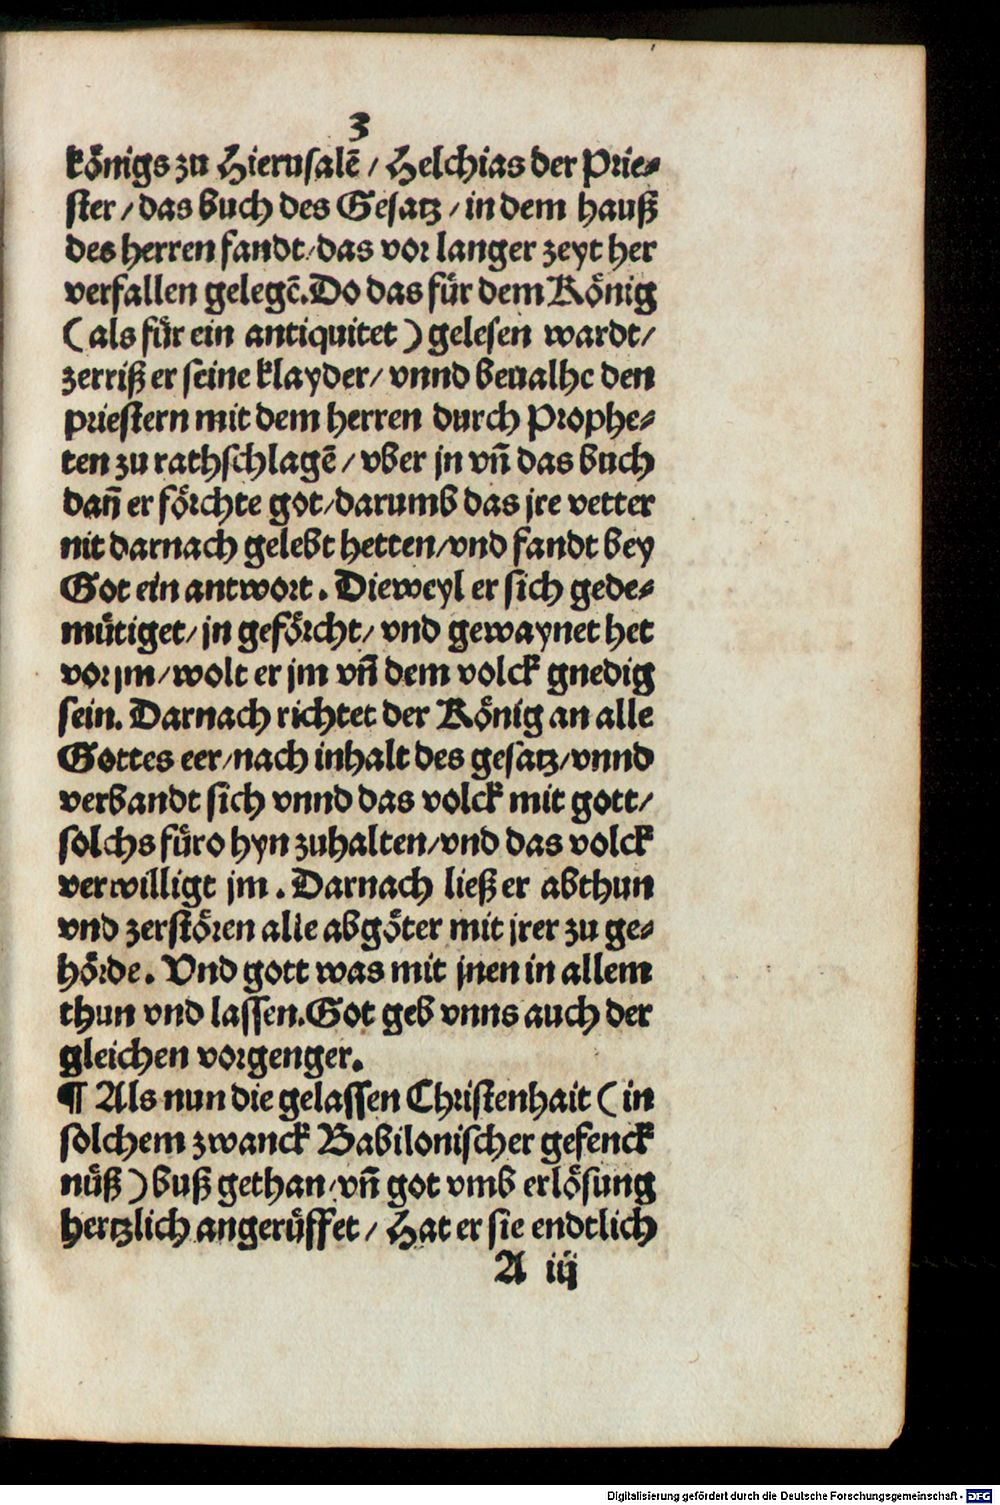 3
königs zu Hierusalē / Helchias der Prie⸗
ster / das buch des Gesatz / in dem hauß
des herren fandt / das vor langer zeyt her
verfallen gelegē. Do das für dem König
( als für ein antiquitet ) gelesen wardt /
zerriß er seine klayder / vnnd beualhe den
priestern mit dem herren durch Prophe⸗
ten zu rathschlagē / vber jn vñ das buch
dañ er förchte got / darumb das jre vetter
nit darnach gelebt hetten / vnd fandt bey
Got ein antwort . Dieweyl er sich gede⸗
mütiget / jn geförcht / vnd gewaynet het
vor jm / wolt er jm vñ dem volck gnedig
sein. Darnach richtet der König an alle
Gottes eer / nach inhalt des gesatz / vnnd
verbandt sich vnnd das volck mit gott /
solchs füro hyn zuhalten / vnd das volck
verwilligt jm . Darnach ließ er abthun
vnd zerstören alle abgöter mit jrer zu ge⸗
hörde. Vnd gott was mit jnen in allem
thun vnd lassen. Got geb vnns auch der
gleichen vorgenger.
¶ Als nun die gelassen Christenhait ( in
solchem zwanck Babilonischer gefenck
nüß ) buß gethan / vñ got vmb erlösung
hertzlich angerüffet / Hat er sie endtlich
A iij
Digitalisierung gefördert durch die Deutsche Forschungsgemeinschaft - DFG